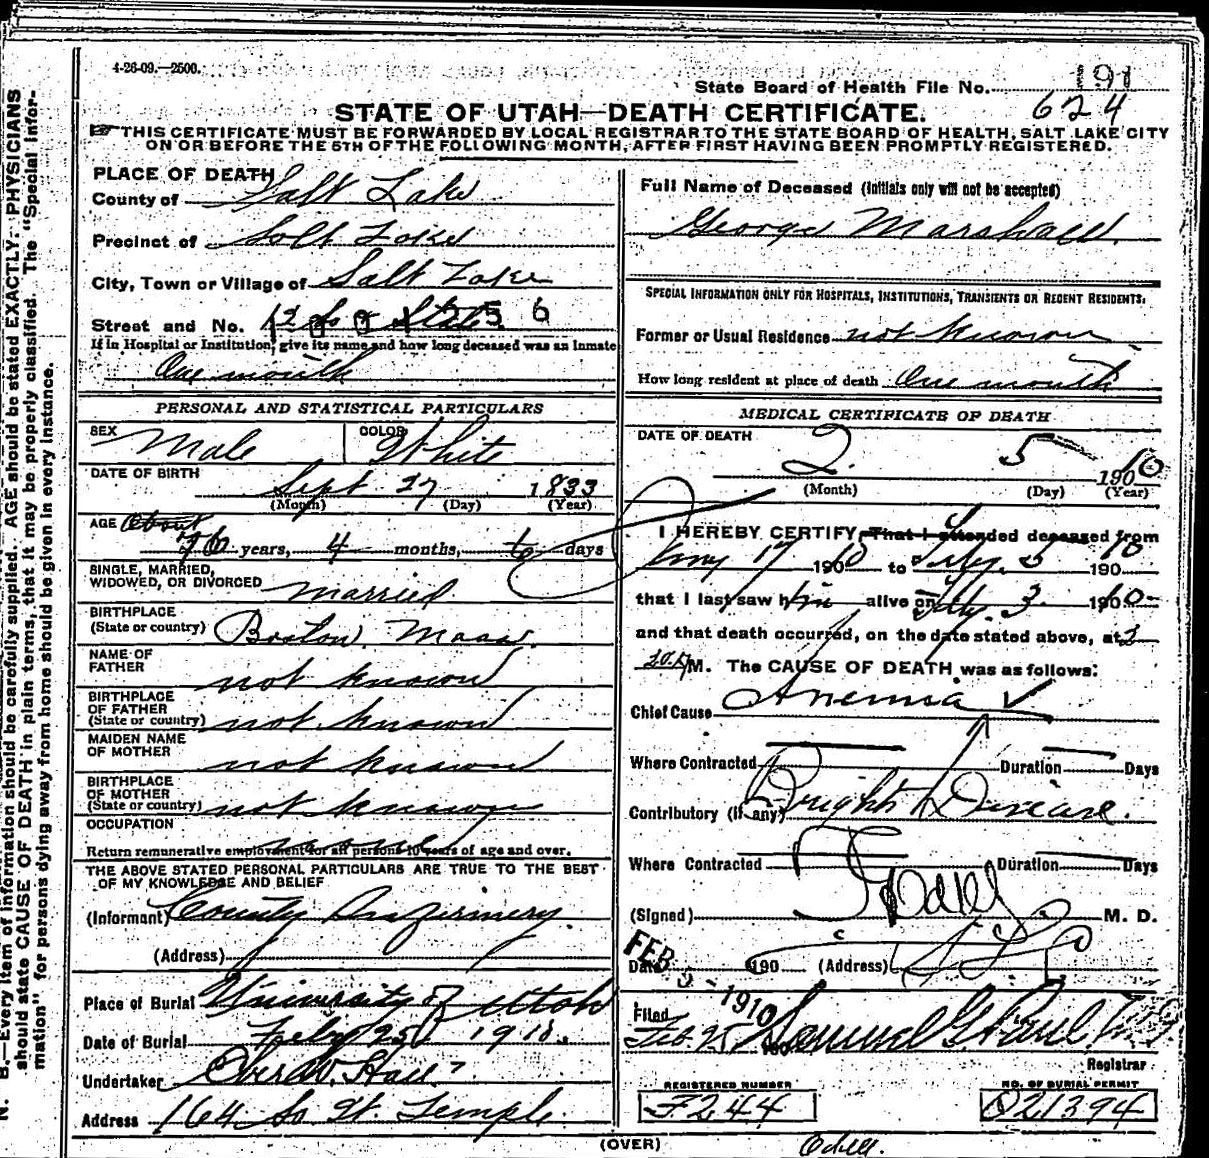 4-26-09.—2500.
State Board of Health File No. 191
624
STATE OF UTAH—DEATH CERTIFICATE.
THIS CERTIFICATE MUST BE FORWARDED BY LOCAL REGISTRAR TO THE STATE BOARD OF HEALTH, SALT LAKE CITY
ON OR BEFORE THE 5TH OF THE FOLLOWING MONTH, AFTER FIRST HAVING BEEN PROMPTLY REGISTERED.
N. B.—Every item of information should be carefully supplied. AGE should be stated EXACTLY. PHYSICIANS
should state CAUSE OF DEATH in plain terms, that it may be properly classified. The "Special Infor-
mation" for persons dying away from home should be given in every instance.
PLACE OF DEATH
County of Salt Lake
Precinct of Salt Lake
City, Town or Village of Salt Lake
Street and No. 12 So State 56
If in Hospital or Institution, give its name and how long deceased was an inmate
One month
PERSONAL AND STATISTICAL PARTICULARS
SEX Male COLOR White
DATE OF BIRTH
Sept 27 1833
(Month) (Day) (Year)
AGE About
76 years, 4 months, days
SINGLE, MARRIED,
WIDOWED, OR DIVORCED married
BIRTHPLACE
(State or country) Boston Mass.
NAME OF
FATHER not known
BIRTHPLACE
OF FATHER
(State or country) not known
MAIDEN NAME
OF MOTHER not known
BIRTHPLACE
OF MOTHER
(State or country) not known
OCCUPATION
Return remunerative employment for all persons 10 years of age and over.
THE ABOVE STATED PERSONAL PARTICULARS ARE TRUE TO THE BEST
OF MY KNOWLEDGE AND BELIEF
(Informant) County Infirmery
(Address)
Place of Burial University of Utah
Date of Burial Feby 25 1910.
Undertaker Eber W. Hall
Address 164 So W. Temple
Full Name of Deceased (Initials only will not be accepted)
George Marshall.
SPECIAL INFORMATION ONLY FOR HOSPITALS, INSTITUTIONS, TRANSIENTS OR RECENT RESIDENTS.
Former or Usual Residence not known
How long resident at place of death One month
MEDICAL CERTIFICATE OF DEATH
DATE OF DEATH
2 5 1910
(Month) (Day) (Year)
I HEREBY CERTIFY, That I attended deceased from
Jany 17 1910 to Feby. 5 1910
that I last saw him alive on Feby. 3. 1910
and that death occurred, on the date stated above, at 2
M. The CAUSE OF DEATH was as follows:
Chief Cause Anemia ✓
Where Contracted Duration Days
Contributory (if any) Brights Disease.
Where Contracted Duration Days
(Signed) M. D.
FEB 5 - 1910
Date 190 (Address) S L C
Filed
Feb. 25 Samuel G. Paul M.D.
Registrar
REGISTERED NUMBER NO. OF BURIAL PERMIT
F244 O21394
(OVER) Odell.